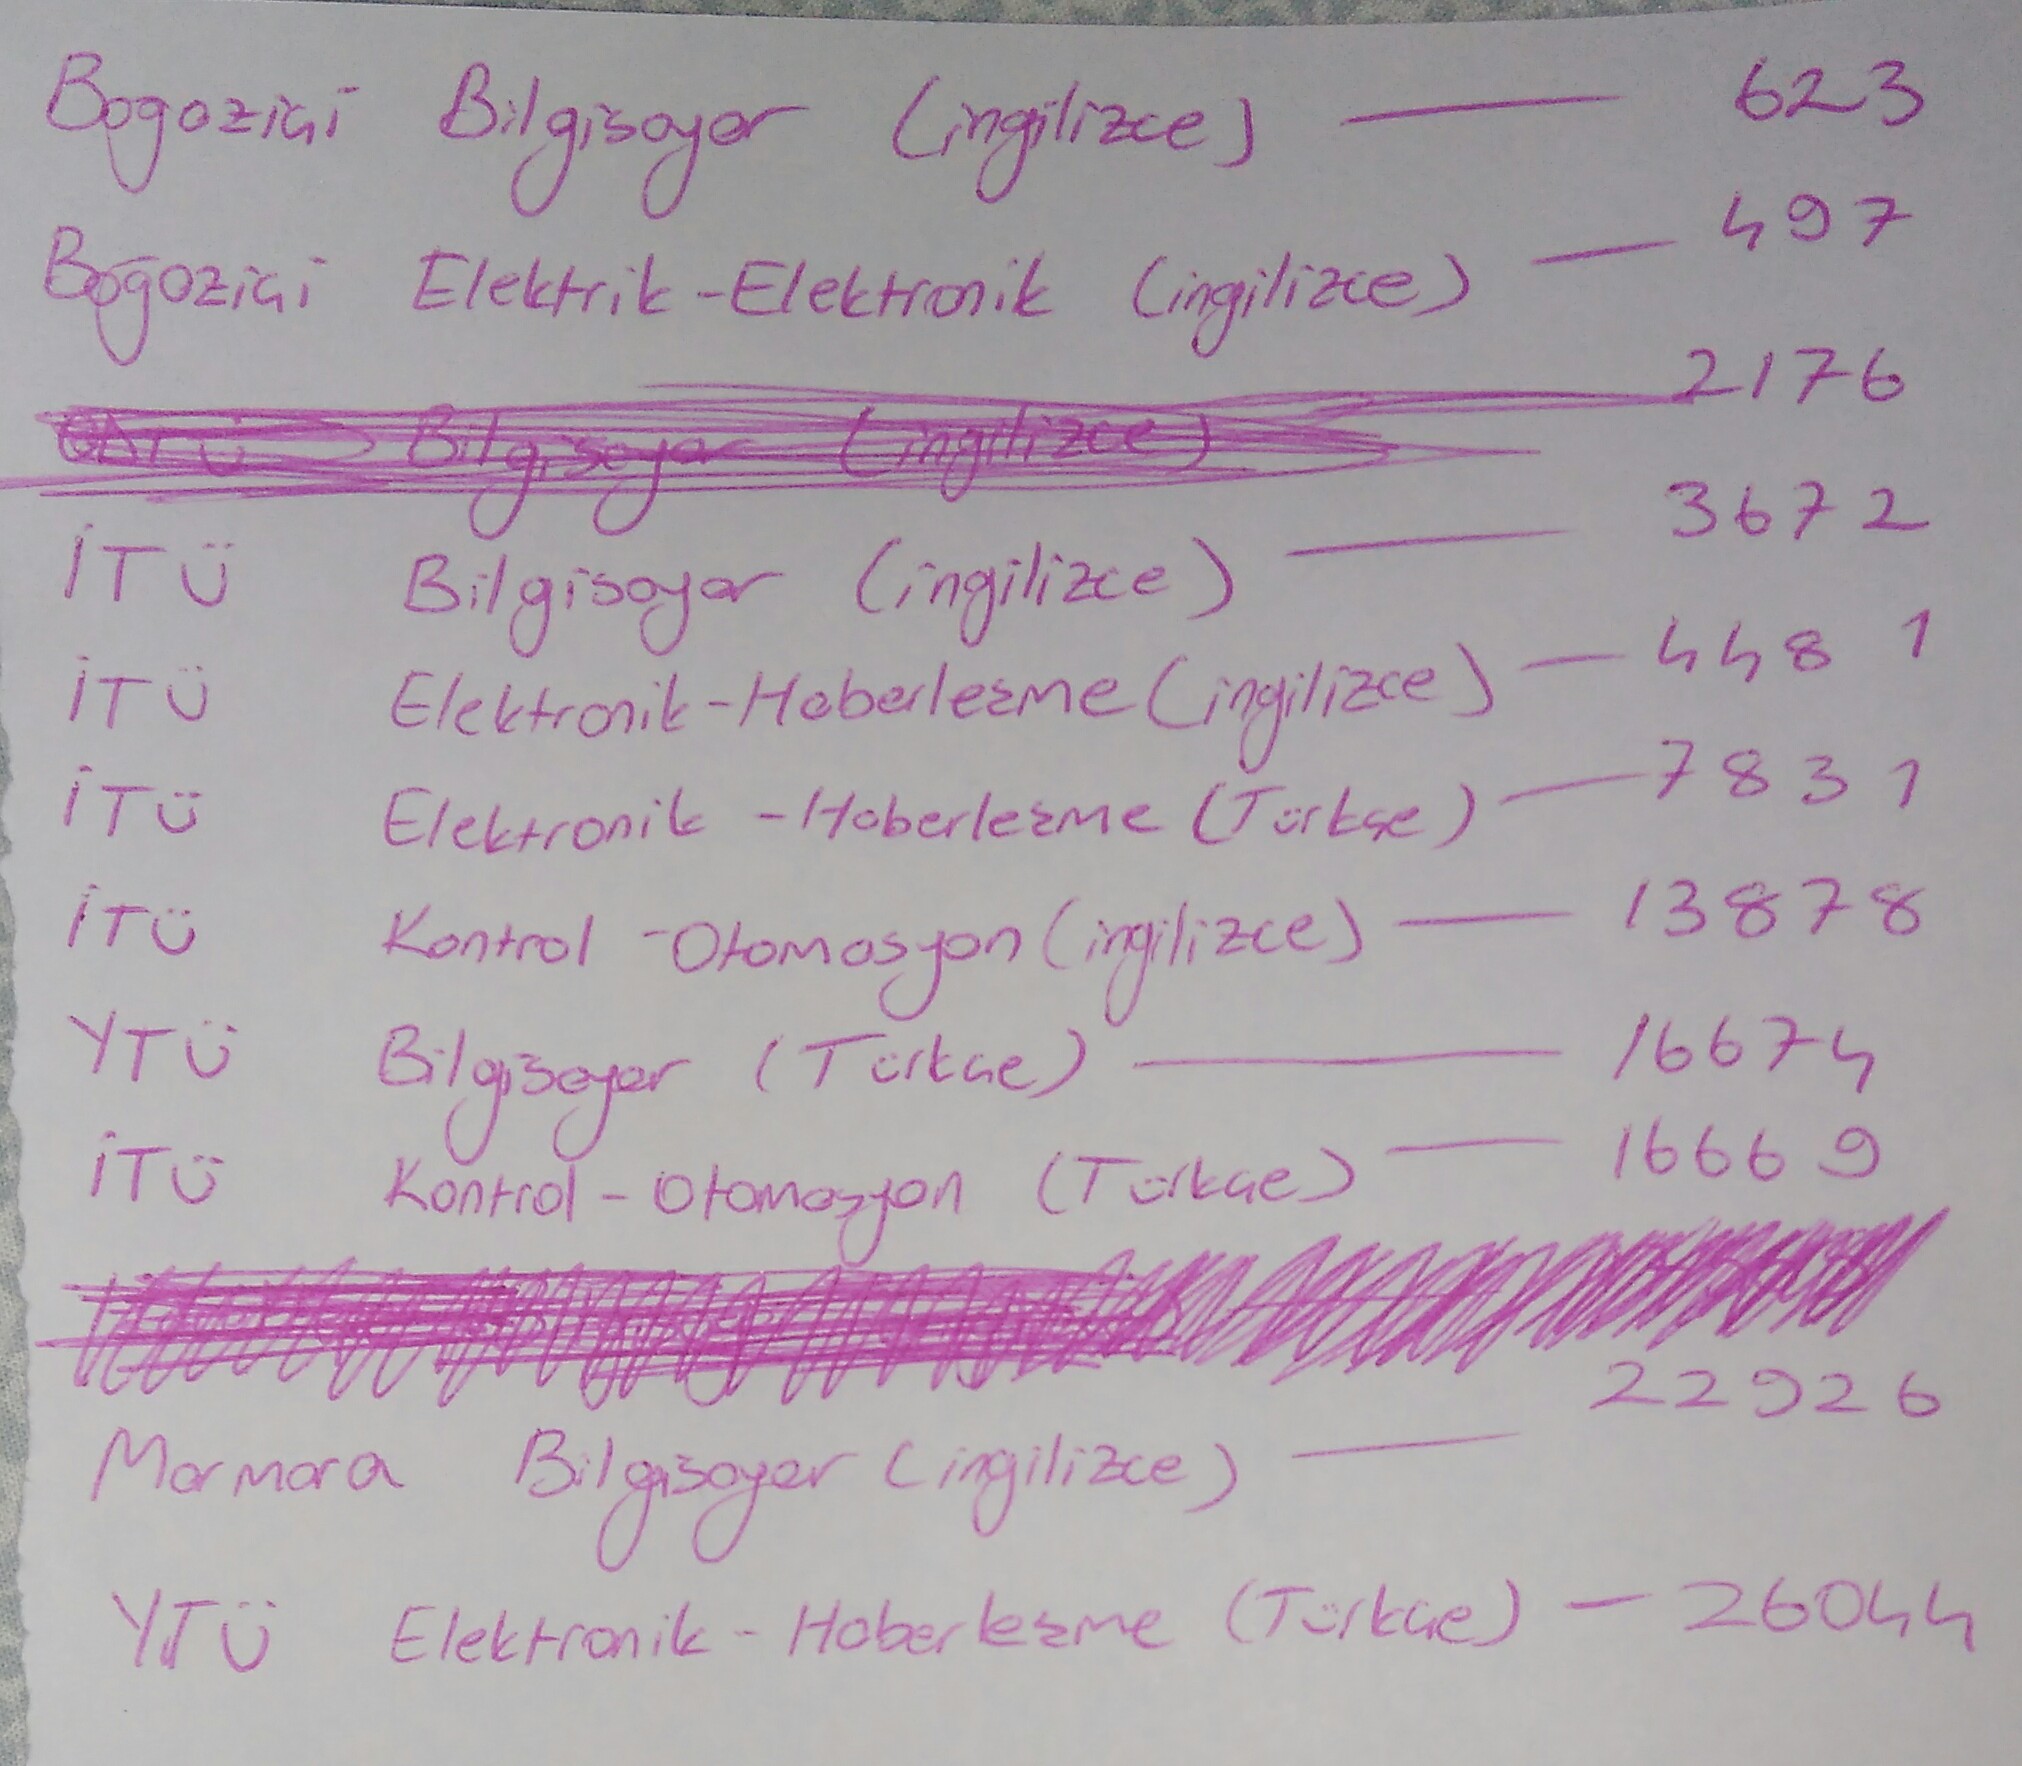 Boğaziçi Bilgisayar (ingilizce) — 623
Boğaziçi Elektrik-Elektronik (ingilizce) — 497
ODTÜ Bilgisayar (ingilizce) 2176
İTÜ Bilgisayar (ingilizce) — 3672
İTÜ Elektronik-Haberleşme (ingilizce) — 4481
İTÜ Elektronik-Haberleşme (Türkçe) — 7831
İTÜ Kontrol-Otomasyon (ingilizce) — 13878
YTÜ Bilgisayar (Türkçe) — 16674
İTÜ Kontrol-Otomasyon (Türkçe) — 16669
Marmara Bilgisayar (ingilizce) — 22926
YTÜ Elektronik-Haberleşme (Türkçe) — 26044